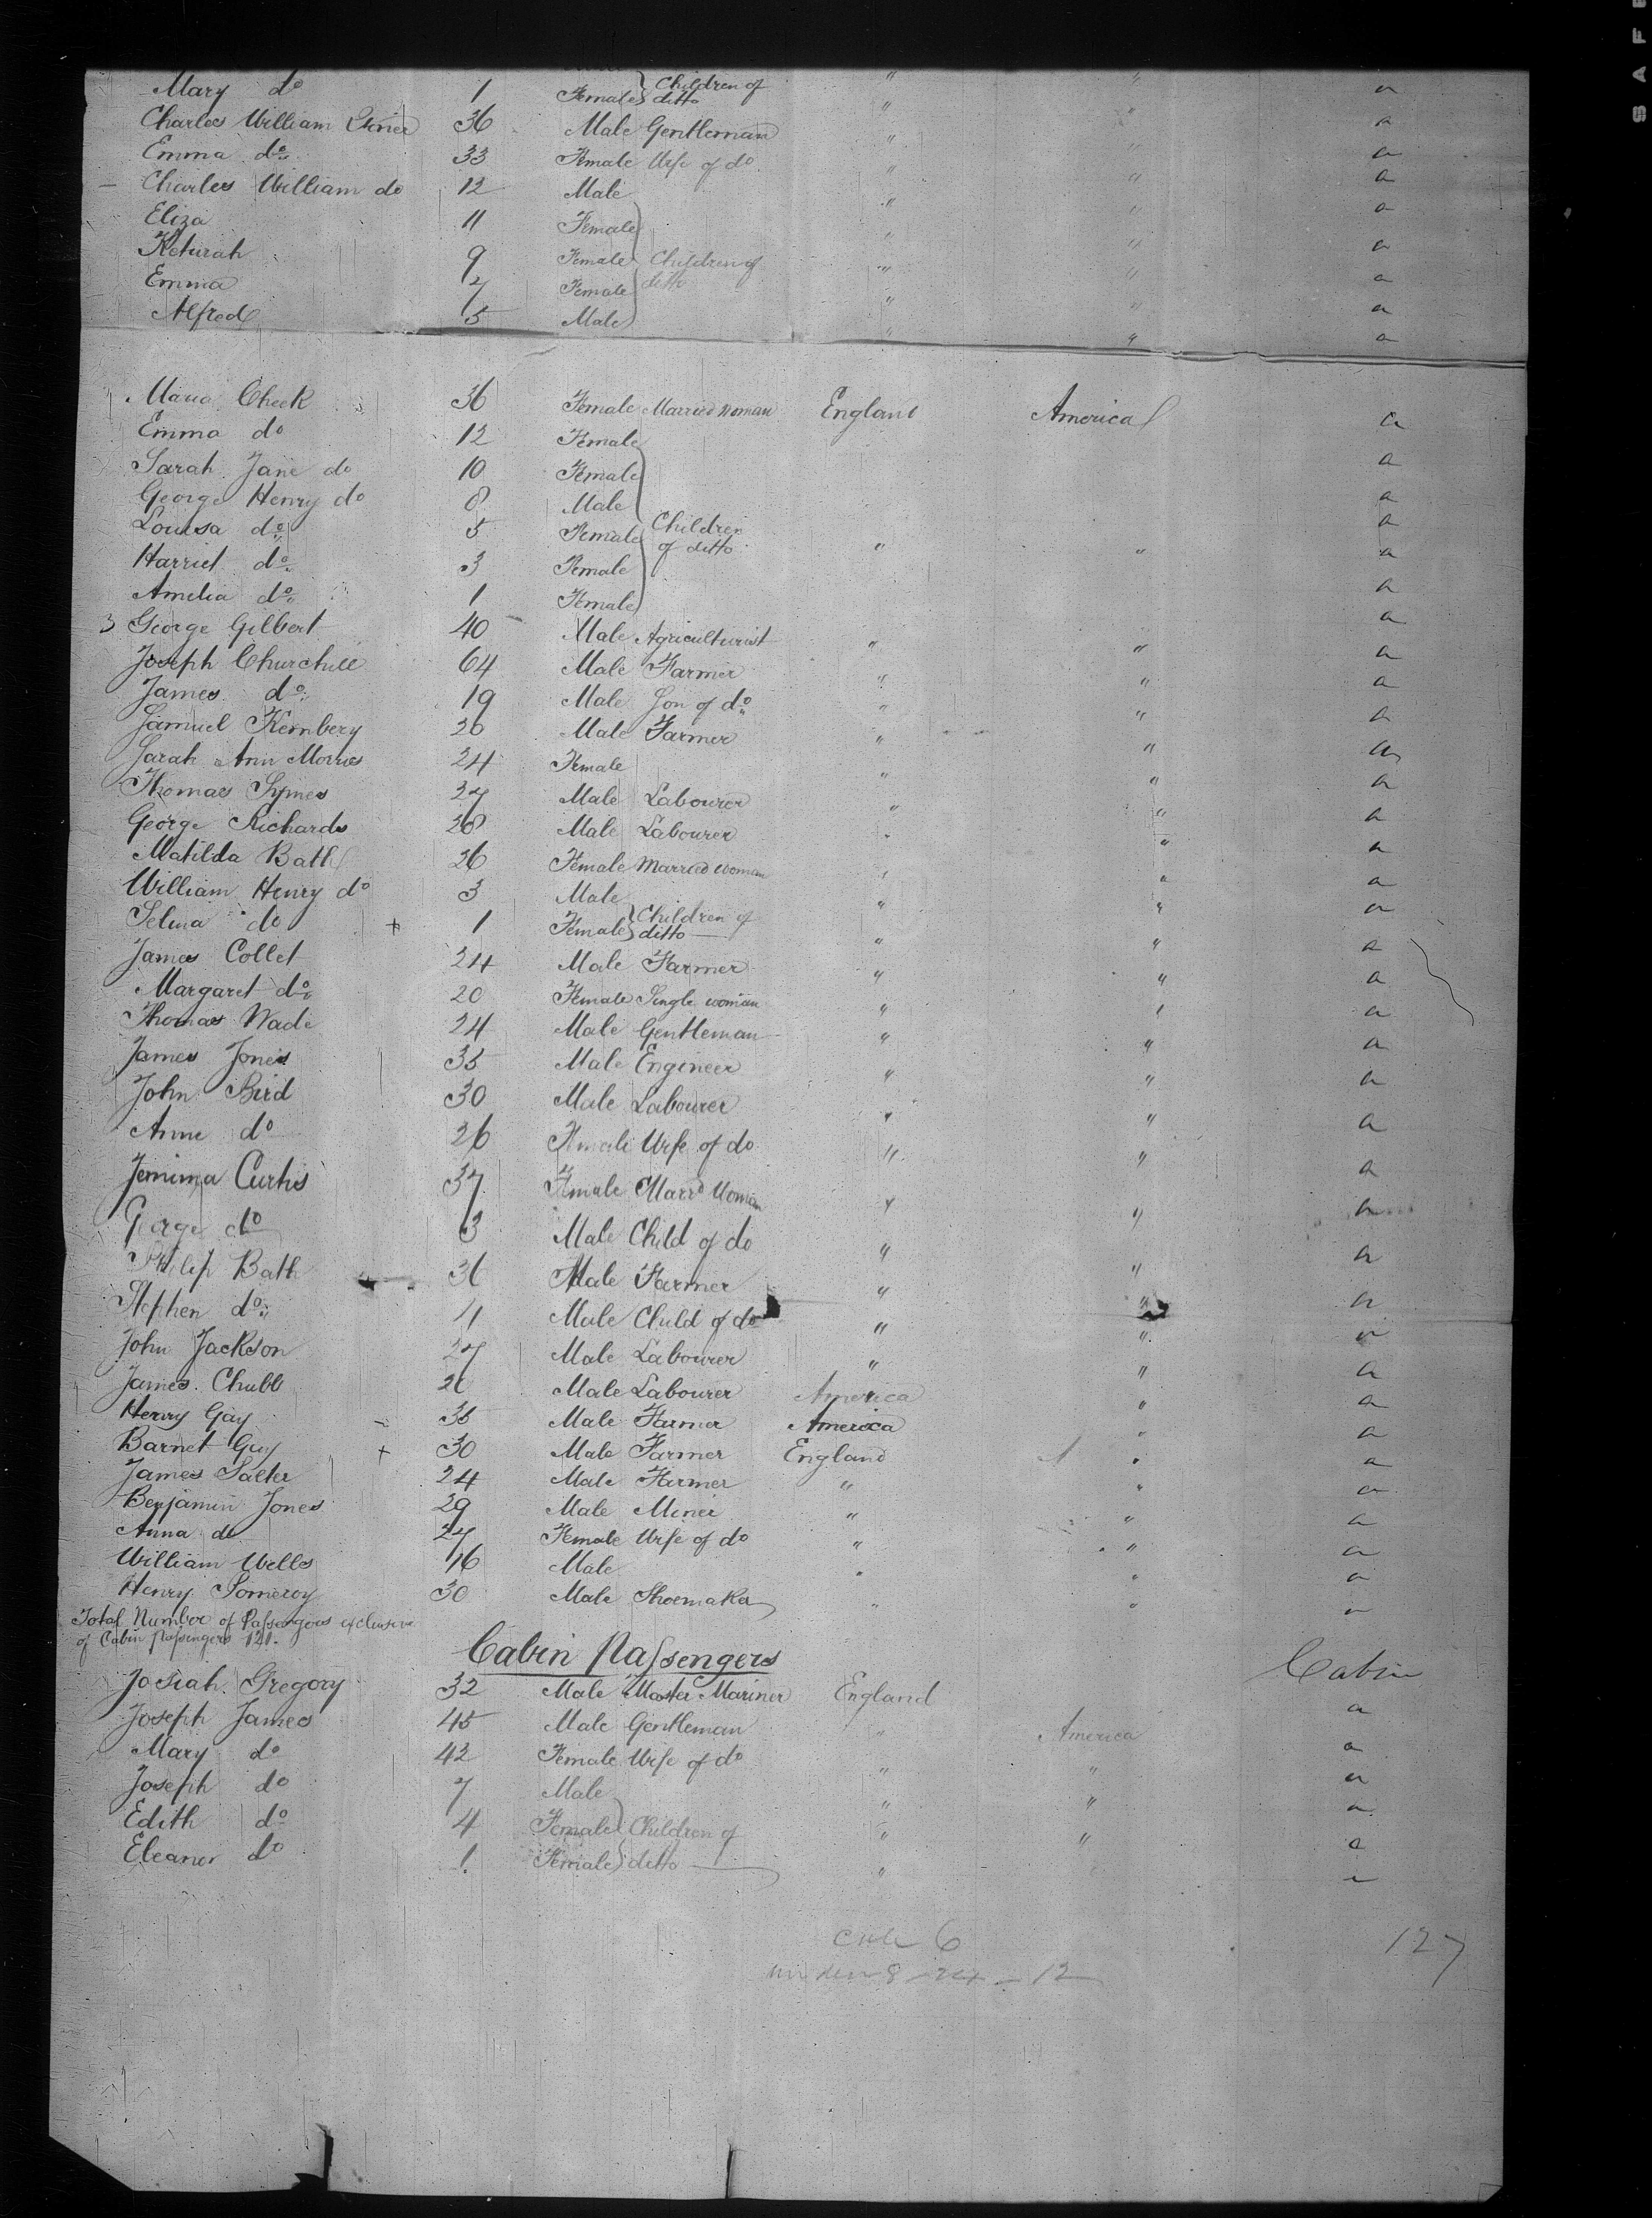 Mary do 1 Female Children of ditto " " a
Charles William 36 Male Gentleman " " a
Emma do 33 Female Wife of do " " a
Charles William do 12 Male " " a
Eliza 11 Female " " a
Keturah 9 Female Children of " " a
Emma 7 Female ditto " " a
Alfred 5 Male " " a
Maria Cheek 36 Female Married woman England America a
Emma do 12 Female a
Sarah Jane do 10 Female a
George Henry do 8 Male a
Louisa do 5 Female Children a
Harriet do 3 Female of ditto " " a
Amelia do 1 Female a
3 George Gilbert 40 Male Agriculturist " " a
Joseph Churchill 64 Male Farmer " " a
James do 19 Male Son of do " " a
Samuel Kembery 26 Male Farmer " " a
Sarah Ann Morris 24 Female " " a
Thomas Symes 27 Male Labourer " " a
George Richards 28 Male Labourer " " a
Matilda Bath 26 Female Married woman " " a
William Henry do 3 Male " " a
Selina do + 1 Female Children of ditto " " a
James Collet 24 Male Farmer " " a
Margaret do 20 Female Single woman " " a
Thomas Wade 24 Male Gentleman " " a
James Jones 35 Male Engineer " " a
John Bird 30 Male Labourer " " a
Anne do 26 Female Wife of do " " a
Jemima Curtis 37 Female Marrd Woman " " a
George do 3 Male Child of do " " a
Philip Bath 36 Male Farmer " " a
Stephen do 11 Male Child of do " " a
John Jackson 27 Male Labourer " " a
James Chubb Male Labourer America " a
Henry Gay 35 Male Farmer America " a
Barnet Guy + 30 Male Farmer England " a
James Salter 24 Male Farmer " " a
Benjamin Jones 29 Male Miner " " a
Anna do 27 Female Wife of do " " a
William Wells 46 Male " " a
Henry Pomeroy 30 Male Shoemaker " " a
Total Number of Passengers exclusive
of Cabin Passengers 121.
Cabin Passengers
Josiah Gregory 32 Male Master Mariner England Cabin
Joseph James 45 Male Gentleman " America a
Mary do 42 Female Wife of do " " a
Joseph do 7 Male " " a
Edith do 4 Female Children of " " a
Eleanor do 1 Female ditto " a
6 127
12
SAFE